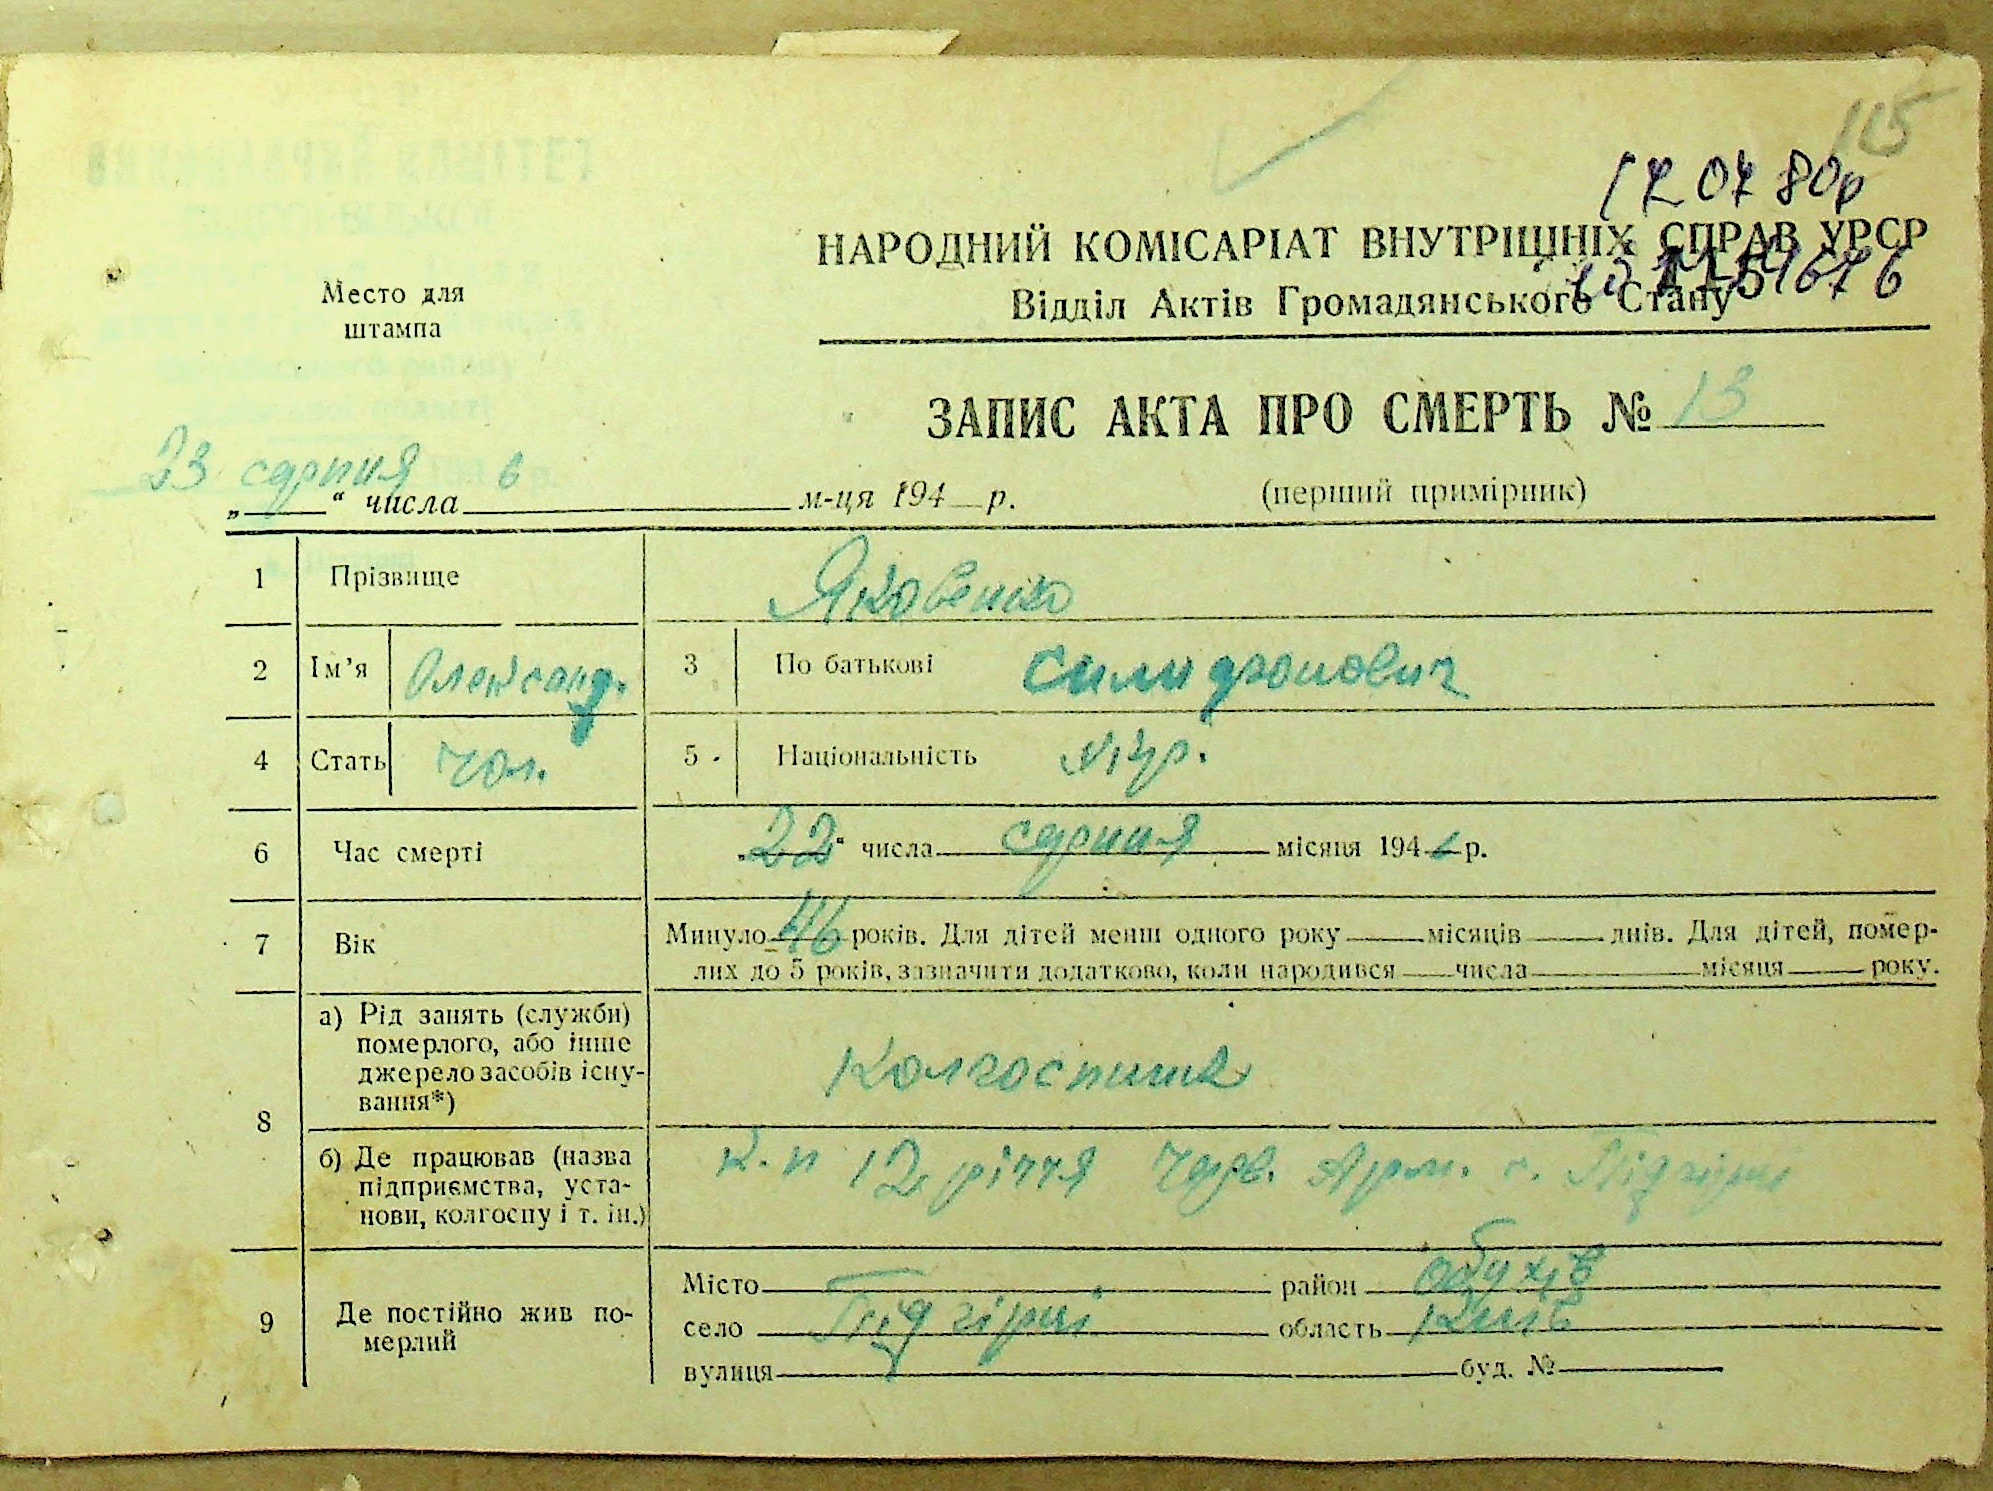 115
17 07 80р
НАРОДНИЙ КОМІСАРІАТ ВНУТРІШНІХ СПРАВ УРСР
Відділ Актів Громадянського Стану
Место для
штампа
ЗАПИС АКТА ПРО СМЕРТЬ № 13
23 серпня 6
„ “ числа м-ця 194 р. (перший примірник)
1 Прізвище Яковенко
2 Ім’я Олександр. 3 По батькові
4 Стать чол. 5 Національність укр.
6 Час смерті „22“ числа серпня місяця 1946 р.
7 Вік Минуло 46 років. Для дітей менш одного року місяців днів. Для дітей, помер-
лих до 5 років, зазначити додатково, коли народився числа місяця року.
8 а) Рід занять (служби)
померлого, або інше
джерело засобів існу-
вання*)
Колгоспник
б) Де працював (назва
підприємства, уста-
нови, колгоспу і т. ін.)
к-п 12 річчя Черв. Арм. с. Підгірці
9 Де постійно жив по-
мерлий
Місто район Обухів
село Підгірці область Київ
вулиця буд. №